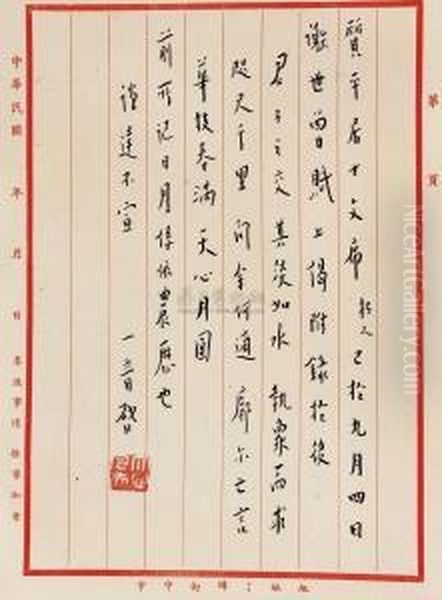 第 頁
質平居士文席 朽人已於九月四日
謝世曾賦二偈附錄於後
君子之交其淡如水執象而求
咫尺千里問余何適廓爾亡言
華枝春滿天心月圓
前所記日月係依農曆也
謹達不宣 一音啟
中華民國 年 月 日
NiceArtGallery.com